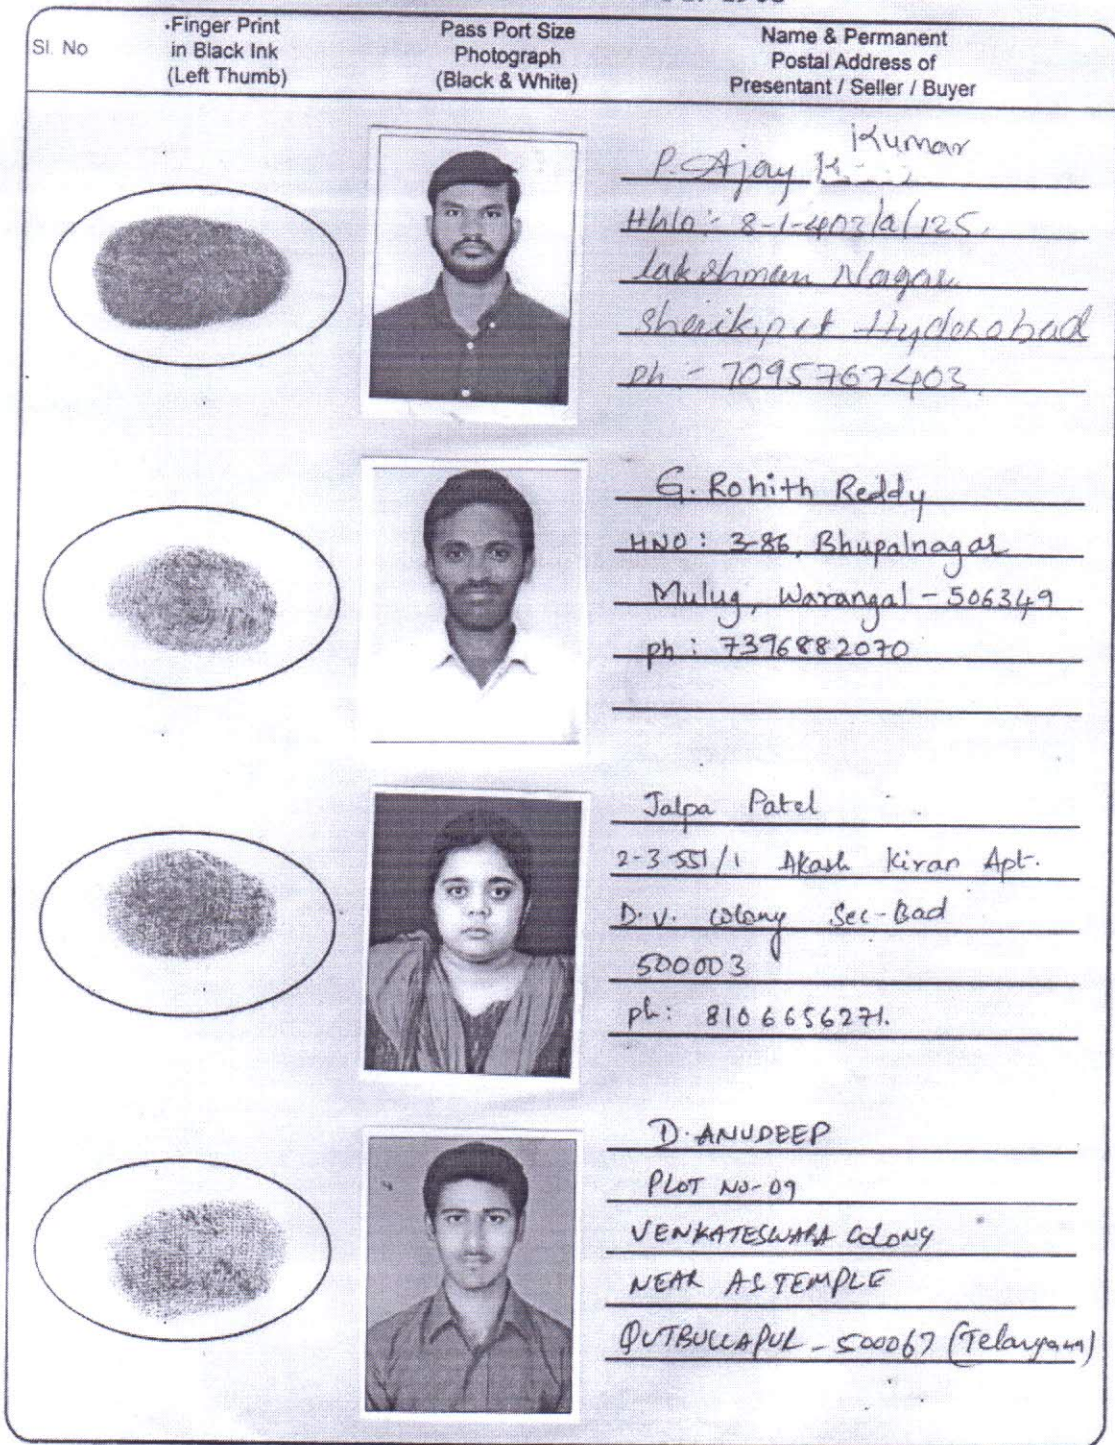 Sl. No
Finger Print
in Black Ink
(Left Thumb)
Pass Port Size
Photograph
(Black & White)
Name & Permanent
Postal Address of
Presentant / Seller / Buyer
Kumar
P. Ajay
HNo: 8-1-403/a/125,
lakshman Nagar
Sheikpet Hyderabad
ph - 7095767403
G. Rohith Reddy
HNO: 3-86, Bhupalnagar
Mulug, Warangal - 506349
ph: 7396882070
Jalpa Patel
2-3-551/1 Akash Kiran Apt.
D.V. Colony Sec-Bad
500003
ph: 8106656271.
D. ANUDEEP
PLOT NO-09
VENKATESWARA COLONY
NEAR AS TEMPLE
QUTBULLAPUR - 500067 (Telangana)